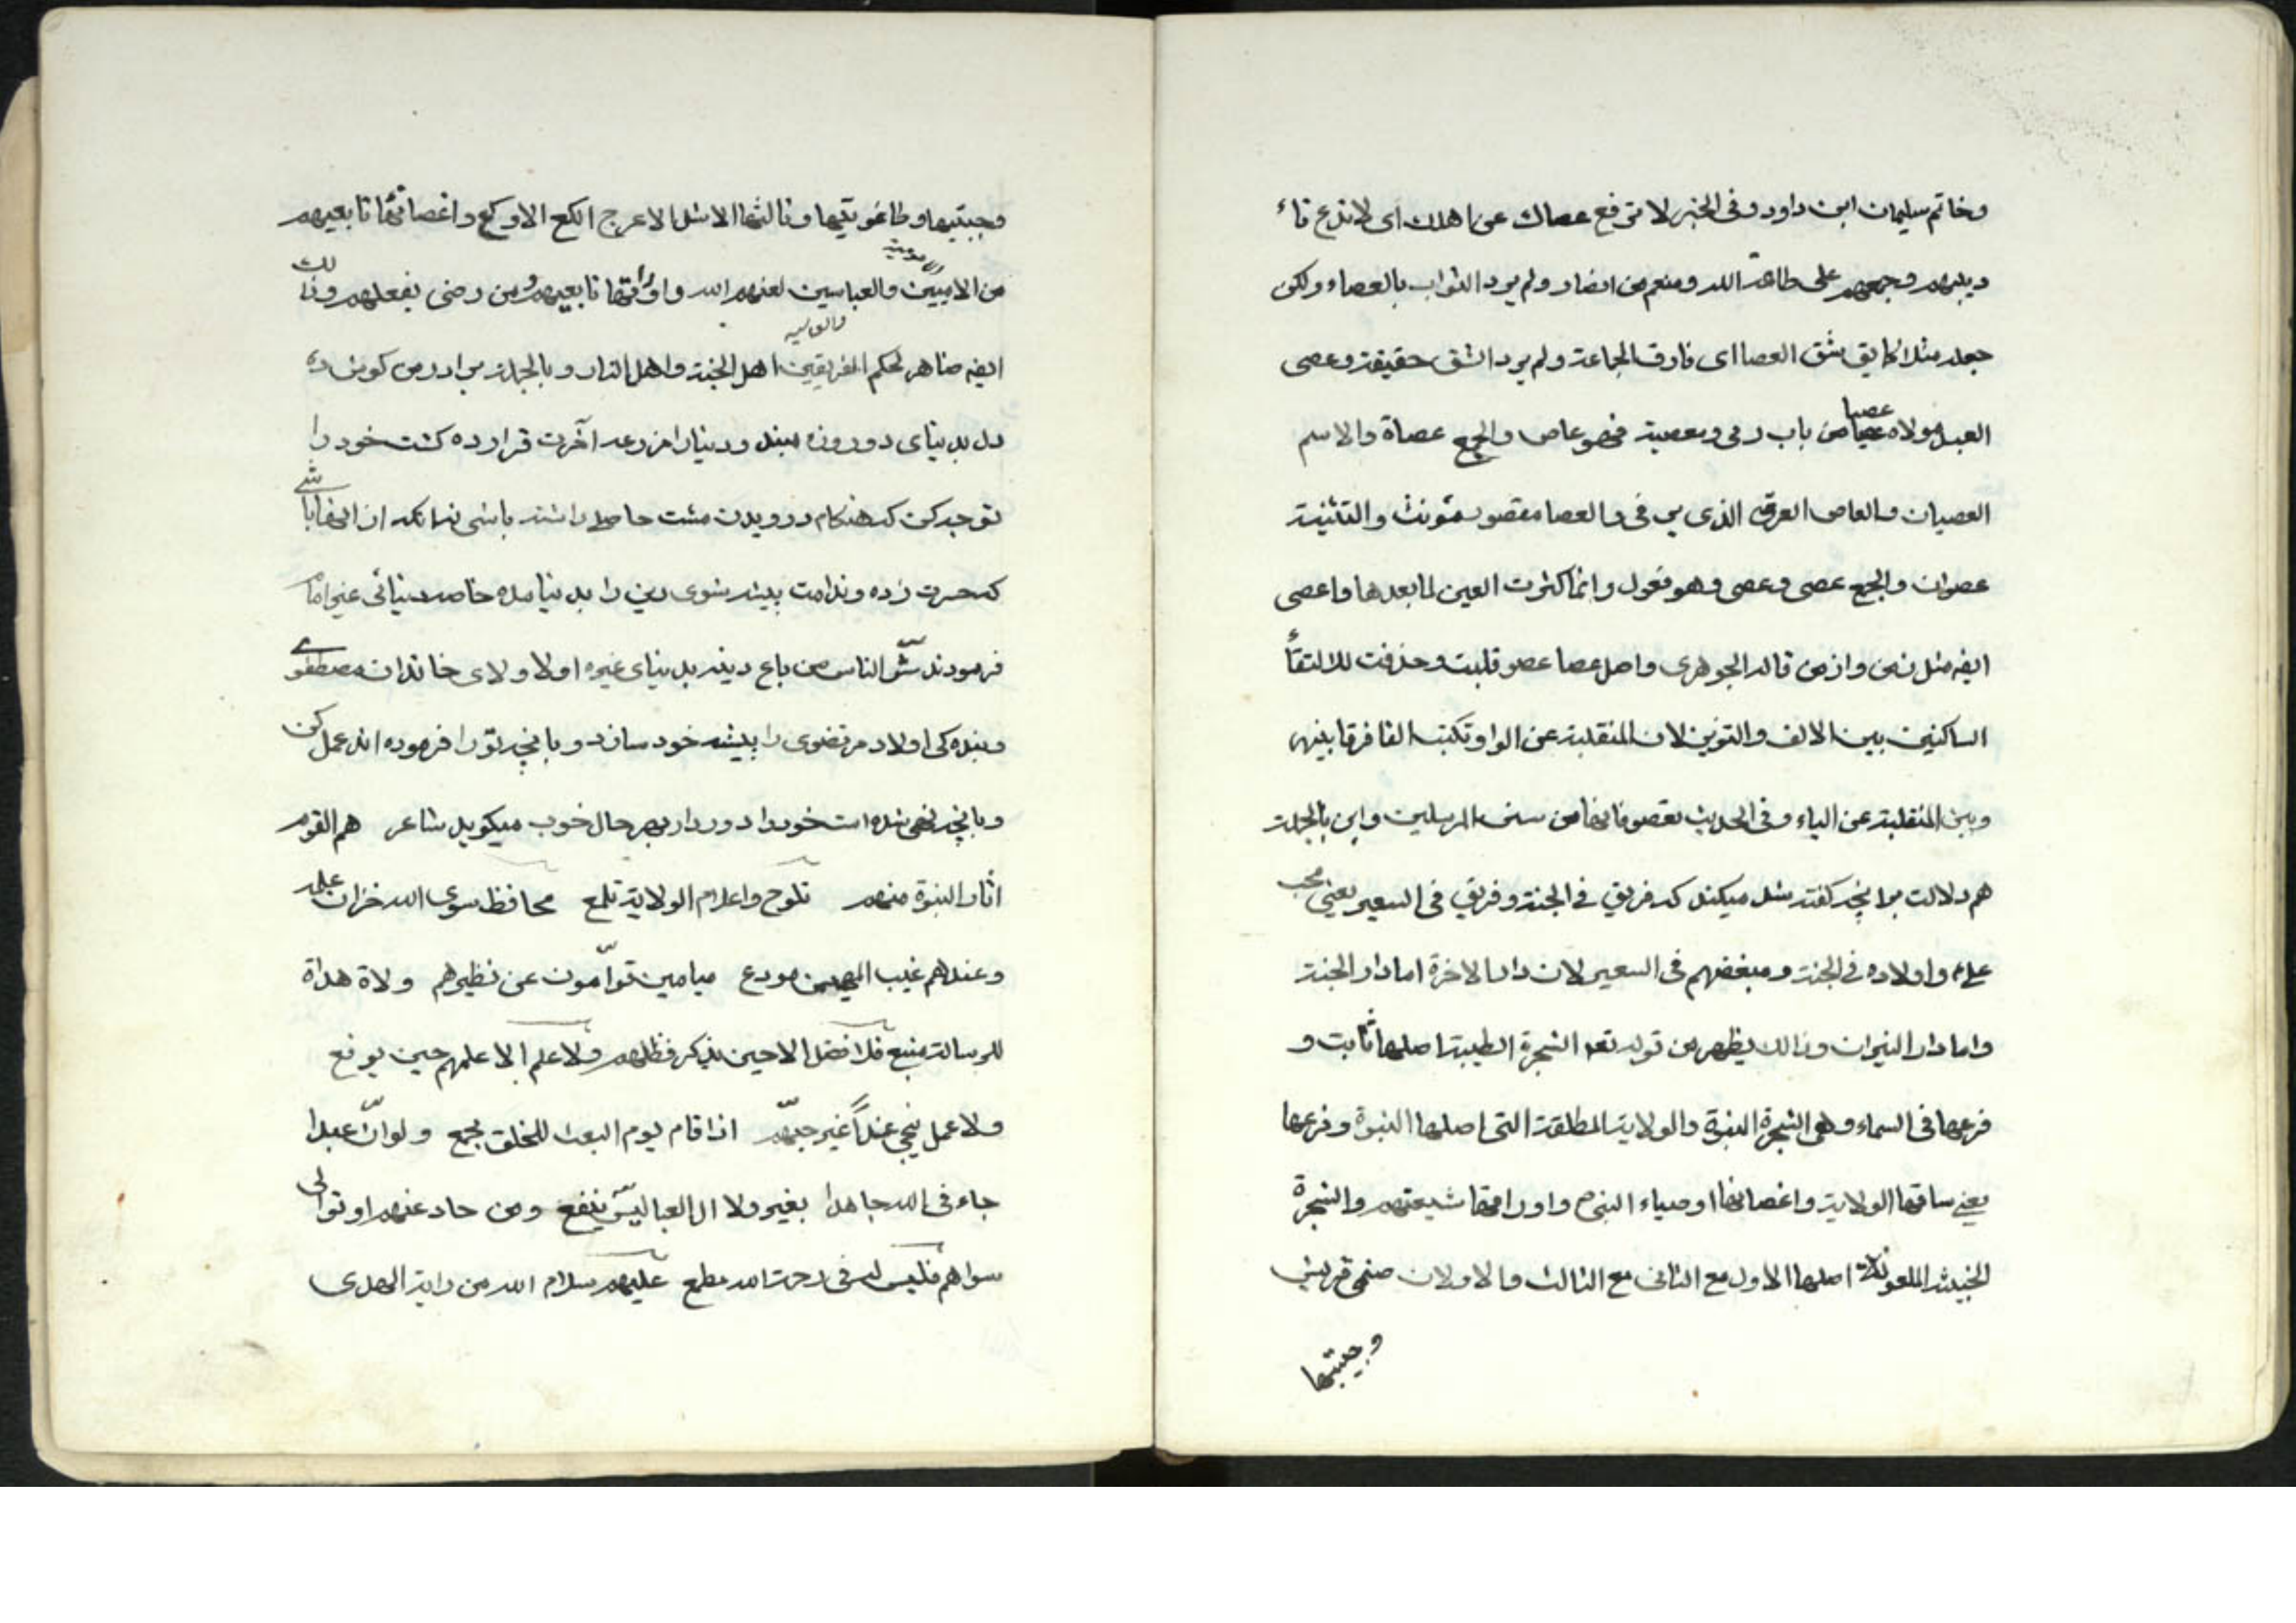 وخاتم سليمان ابن داود وفى الخبر لا ترفع عصاك عن اهلك اى لا تدع تاء
ديبهم وجمعهم على طاعة الله ومنعهم من الضار ولم يرد الثواب بالعصاء ولكن
جعله مثلا كما يق شق العصا اى فارق الجماعة ولم يرد الشق حقيقة وعصى
العبد مولاه عصيا من باب رمى ومعصية فهو عاص والجمع عصاة والاسم
العصيان والعاص العرق الذى لا يرقى والعصا مقصور مؤنث والتثنية
عصوان والجمع عصى وعصى وهو فعول وانما كثرت العين لما بعدها واعصى
ايضه مثل زمن وازمن قاله الجوهرى واصل عصا عصو قلبت وحذفت للالتقأ
الساكنين بين الالف والتنوين لان المنقلبة عن الواو تكتب الفا فرقا بينها
وبين المنقلبة عن الياء وفى الحديث تعصو فانها من سنن المرسلين واين بالجملة
هم دلالت برانچه كفته شد ميكند كه فريق في الجنة وفريق فى السعير يعنى محب
على واولاده فى الجنة ومبغضهم فى السعير لان دار الاخرة اما دار الجنة
واما دار النيران وذالك يظهر من قوله تعه الشجرة الطيبة اصلها ثابت و
فرعها فى السماء وهى الشجرة النبوة والولاية المطلقة التى اصلها النبوة وفرعها
يعنى ساقها الولاية واغصانها اوصياء النبى واوراقها شيعتهم والشجرة
الخبيثه الملعونة اصلها الاول مع الثانى مع الثالث والاولان صنمى قريش
وجبتيها
وجبتيها وطاغوتيها وثالثها الاشل الاعرج الكع الاوكع واغصانها تابعيهم
من الاميين والعباسين لعنهم الله واوراقها تابعيهم ومن رضى بفعلهم وذالك
ايضه ظاهر لحكم الفريقين اهل الجنة واهل النار وبالجملة برادر من كوش ده
دل بدنياى دو روزه مبند ودنيا را مزرعه آخرت قرار ده كشت خود را
توجه كن كه هنكام درويدن مشت حاصل داشته باشى نه انكه از انها باشى
كه حسرت زده وندامت پيشه شوى دين را بدنيا مده خاصه دنيائى غير امام
فرمودند شر الناس من باع دينه بدنياى غيره اولا ولاى خاندان مصطفوى
وبنده كى اولاد مرتضوى را پيشه خود ساز وبانچه تو را فرموده اند عمل كن
وبانچه نهى شده است خود را دور دار بهر حال خوب ميكويد شاعر هم القوم
اثار النبوة منهم تلوح واعلام الولاية تلمع محافظ سوى الله خزان علمه
وعندهم غيب المهيمن مودع ميامين قوامون عن نظيرهم ولاة هداة
للرسالة منبع فلا فضل الا حين يذكر فضلهم ولا علم الا علمهم حين يرفع
ولا عمل ينجى غدا غير حبهم اذا قام يوم البعث للخلق مجمع ولو ان عبدا
جاء فى الله جاهدا بغير ولا ال العبا ليس ينفع ومن حاد عنهم او توالى
سواهم فليس له فى رحمة الله مطمع عليهم سلام الله من راية الهدى